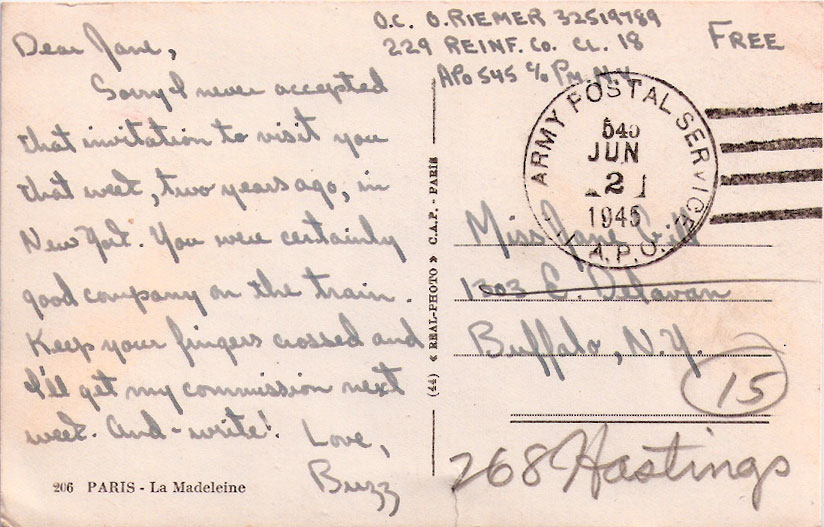 O.C. O.RIEMER 32519789
229 REINF. CO. CL. 18
APO 545 c/o PM. N.Y
FREE
Dear Jane,
Sorry I never accepted
that invitation to visit you
that week, two years ago, in
New York. You were certainly
good company on the train.
Keep your fingers crossed and
I'll get my commission next
week. And - write! Love,
Buzz
206 PARIS - La Madeleine
(44) « REAL-PHOTO » C.A.P. - PARIS
ARMY POSTAL SERVICE
545
JUN
2
1945
A.P.O.
Miss Jane Gill
1303 E. Delavan
Buffalo, N.Y.
15
268 Hastings